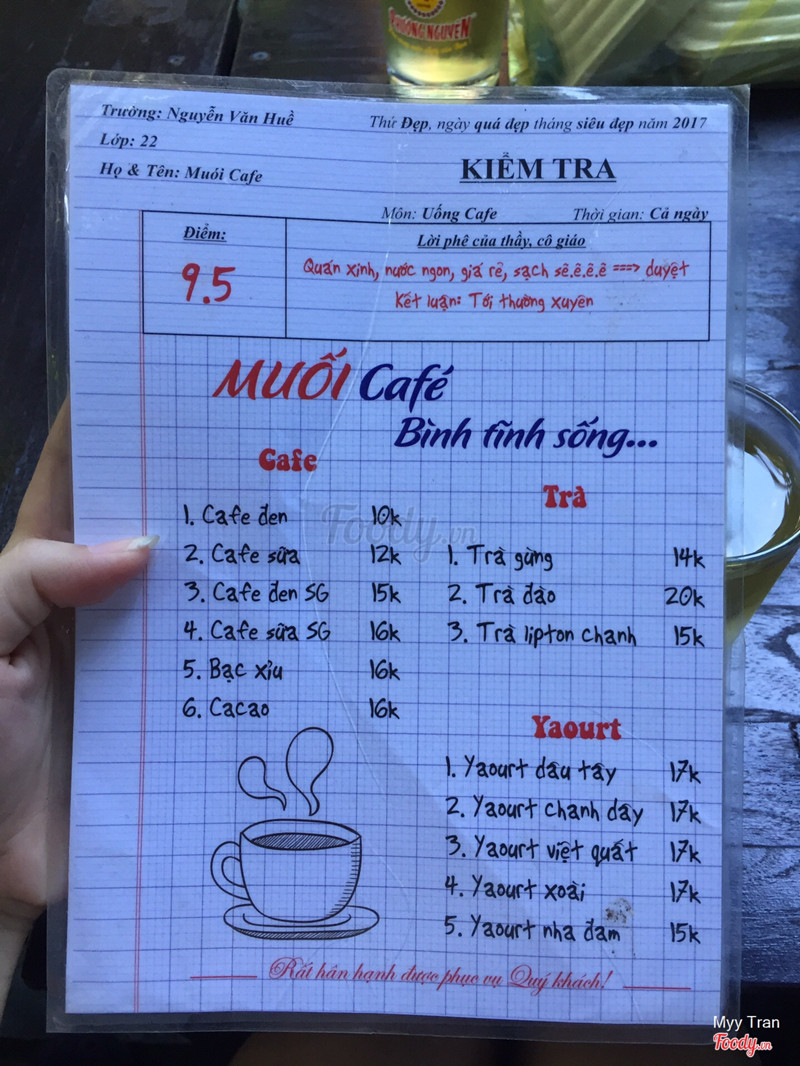 PHƯƠNG NGUYÊN
Trường: Nguyễn Văn Huề
Thứ Đẹp, ngày quá đẹp tháng siêu đẹp năm 2017
Lớp: 22
Họ & Tên: Muói Cafe
KIỂM TRA
Môn: Uống Cafe
Thời gian: Cả ngày
Điểm:
9.5
Lời phê của thầy, cô giáo
Quán xinh, nước ngon, giá rẻ, sạch sẽ.ê.ê.ê ===> duyệt
Kết luận: Tới thường xuyên
MUỐI Café
Bình tĩnh sống...
Cafe
1. Cafe đen 10k
2. Cafe sữa 12k
3. Cafe đen SG 15k
4. Cafe sữa SG 16k
5. Bạc xỉu 16k
6. Cacao 16k
Trà
1. Trà gừng 14k
2. Trà đào 20k
3. Trà lipton chanh 15k
Yaourt
1. Yaourt dâu tây 17k
2. Yaourt chanh dây 17k
3. Yaourt việt quất 17k
4. Yaourt xoài 17k
5. Yaourt nha đam 15k
Rất hân hạnh được phục vụ Quý khách!
Foody.vn
Myy Tran
Foody.vn